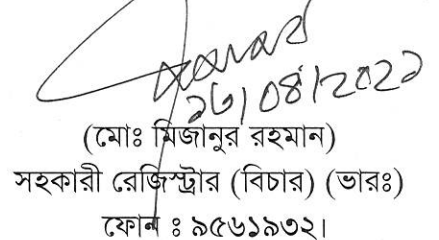 (মোঃ মিজানুর রহমান)
সহকারী রেজিস্ট্রার (বিচার) (ভারঃ)
ফোন ঃ ৯৫৬১৯৩২।